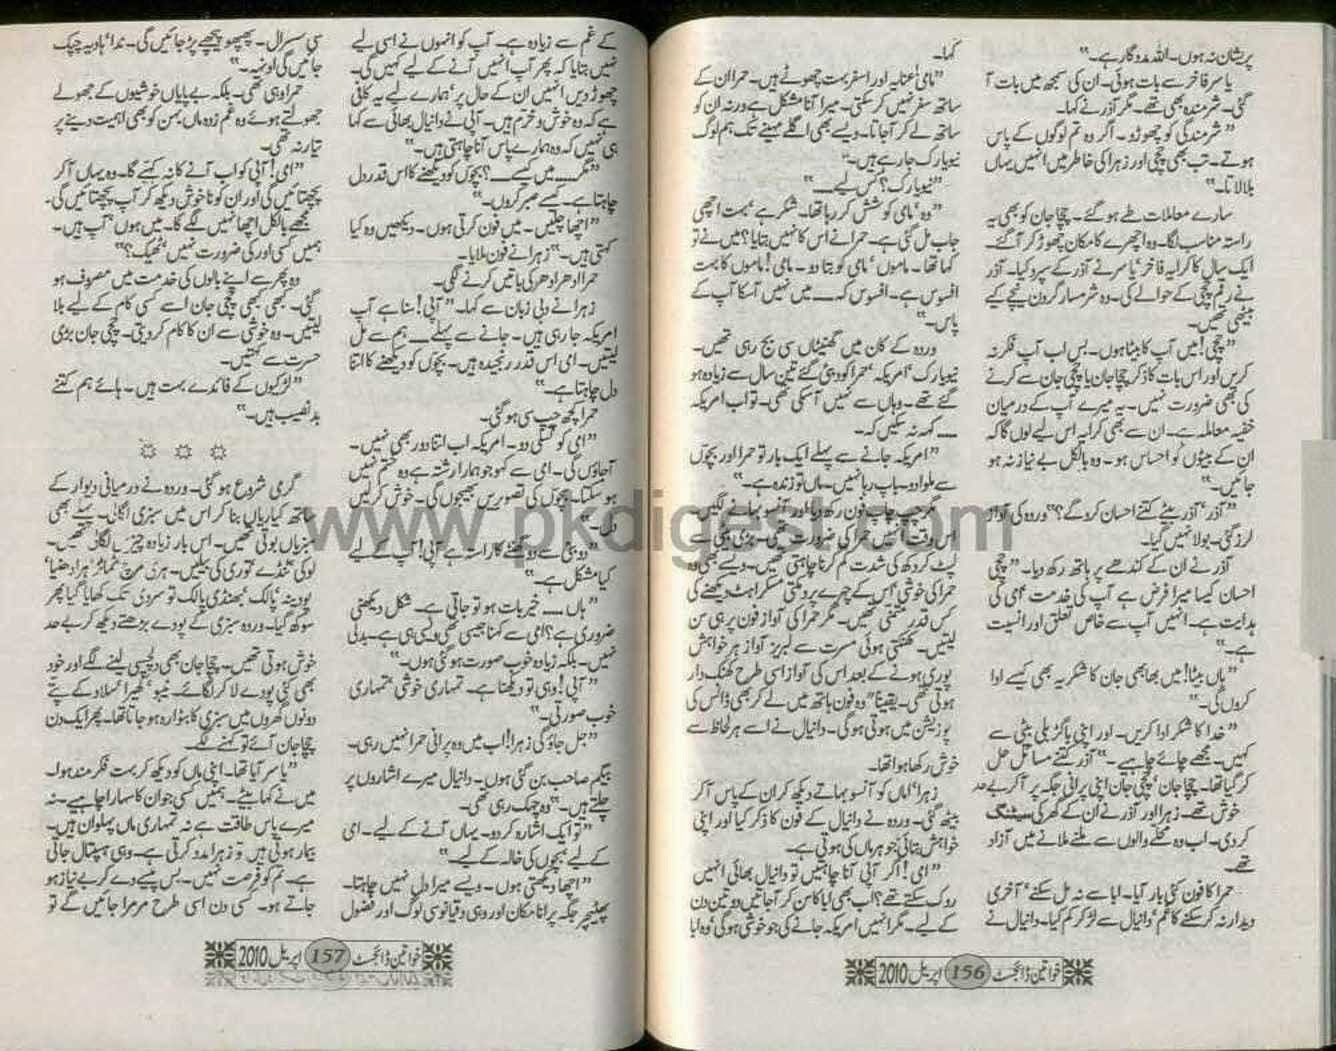 پریشان نہ ہوں۔ اللہ مددگار ہے۔"
یاسر فاخر سے بات ہوئی۔ ان کی سمجھ میں بات آ
گئی۔ شرمندہ بھی تھے۔ مگر آذر نے کہا۔
"شرمندگی کو چھوڑو۔ اگر وہ تم لوگوں کے پاس
ہوتے۔ تب بھی چچی اور زہرا کی خاطر میں انہیں یہاں
بلا لاتا۔"
سارے معاملات طے ہو گئے۔ چچا جان کو بھی یہ
راستہ مناسب لگا۔ وہ اچھرے کا مکان چھوڑ کر آ گئے
ایک سال کا کرایہ فاخر، یاسر نے آذر کے سپرد کیا۔ آذر
نے رقم چچی کے حوالے کی۔ وہ شرمسار گردن نیچے کیے
بیٹھی تھیں۔
"چچی! میں آپ کا بیٹا ہوں۔ بس اب آپ فکر نہ
کریں اور اس بات کا ذکر چچا جان یا چچی جان سے کرنے
کی بھی ضرورت نہیں۔ یہ میرے آپ کے درمیان
خفیہ معاملہ ہے۔ ان سے بھی کرایہ اس لیے لوں گا کہ
ان کے بیٹوں کو احساس ہو۔ وہ بالکل بے نیاز نہ ہو
جائیں۔"
"آذر، آذر بیٹے کتنے احسان کرو گے؟" وردہ کی آواز
لرز گئی۔ بولا نہیں گیا۔
آذر نے ان کے کندھے پر ہاتھ رکھ دیا۔ "چچی
احسان کیسا میرا فرض ہے آپ کی خدمت، امی کی
ہدایت ہے۔ انہیں آپ سے خاص تعلق اور انسیت
ہے۔"
"ہاں بیٹا! میں بھابھی جان کا شکریہ بھی کیسے ادا
کروں گی۔"
"خدا کا شکر ادا کریں۔ اور اپنی باگڑ بلی بیٹی سے
کہیں۔ مجھے چائے چاہیے۔" آذر کتنے مسائل حل
کر گیا تھا۔ چچا جان، چچی جان اپنی پرانی جگہ پر آ کر بے حد
خوش تھے۔ زہرا اور آذر نے ان کے گھر کی سیٹنگ
کر دی۔ اب وہ محلے والوں سے ملنے ملانے میں آزاد
تھے۔
حمرا کا فون کئی بار آیا۔ ابا سے نہ مل سکنے، آخری
دیدار نہ کر سکنے کا غم، دانیال سے لڑ کر کم کیا۔ دانیال نے
کہا۔
"مامی! عنایہ اور اسفر بہت چھوٹے ہیں۔ حمرا ان کے
ساتھ سفر نہیں کر سکتی۔ میرا آنا مشکل ہے ورنہ ان کو
ساتھ لے کر آ جاتا۔ ویسے بھی اگلے مہینے تک ہم لوگ
نیویارک جا رہے ہیں۔"
"نیویارک؟ کس لیے۔۔۔"
"وہ، مامی کوشش کر رہا تھا۔ شکر ہے، بہت اچھی
جاب مل گئی ہے۔ حمرا نے اس کا نہیں بتایا؟ میں نے تو
کہا تھا۔ ماموں، مامی کو بتا دو۔ مامی! ماموں کا بہت
افسوس ہے۔ افسوس کہ۔۔۔ میں نہیں آ سکا آپ کے
پاس۔"
وردہ کے کان میں گھنٹیاں سی بج رہی تھیں۔
نیویارک، امریکہ، حمرا کو دبئی گئے تین سال سے زیادہ ہو
گئے تھے۔ وہاں سے نہیں آ سکی تھی۔ تو اب امریکہ
۔۔۔ کہہ نہ سکیں کہ۔
"امریکہ جانے سے پہلے ایک بار تو حمرا اور بچوں
سے ملوا دو۔ باپ رہا نہیں۔ ماں تو زندہ ہے۔"
مگر چپ چاپ فون رکھ دیا اور آنسو بہانے لگیں
اس وقت انہیں حمرا کی ضرورت تھی۔ بڑی بیٹی سے
لپٹ کر دکھ کی شدت کم کرنا چاہتی تھیں۔ ویسے بھی وہ
حمرا کی خوشی، اس کے چہرے پر دمکتی مسکراہٹ دیکھنے کی
کس قدر متمنی تھیں۔ مگر حمرا کی آواز فون پر ہی سن
لیتیں۔ کھنکتی ہوئی مسرت سے لبریز آواز ہر خواہش
پوری ہونے کے بعد اس کی آواز اسی طرح کھنک دار
ہوتی تھی۔ یقیناً "وہ فون ہاتھ میں لے کر بھی ڈانس کی
پوزیشن میں ہوتی ہو گی۔ دانیال نے اسے ہر لحاظ سے
خوش رکھا ہوا تھا۔
زہرا، اماں کو آنسو بہاتے دیکھ کر ان کے پاس آ کر
بیٹھ گئی۔ وردہ نے دانیال کے فون کا ذکر کیا اور اپنی
خواہش بتائی جو ہر ماں کی ہوتی ہے۔
"امی! اگر آپی آنا چاہتیں تو دانیال بھائی انہیں
روک سکتے تھے؟ اب بھی ابا کا سن کر آ جاتیں دو تین دن
کے لیے۔ مگر انہیں امریکہ جانے کی جو خوشی ہو گی، وہ ابا
خواتین ڈائجسٹ 156 اپریل 2010
کے غم سے زیادہ ہے۔ آپ کو انہوں نے اسی لیے
نہیں بتایا کہ پھر آپ انہیں آنے کے لیے کہیں گی۔
چھوڑ دیں انہیں ان کے حال پر، ہمارے لیے یہ کافی
ہے کہ وہ خوش و خرم ہیں۔ آپی نے دانیال بھائی سے کہا
ہی نہیں کہ وہ ہمارے پاس آنا چاہتی ہیں۔"
"مگر۔۔۔ میں کیسے۔۔۔؟ بچوں کو دیکھنے کا اس قدر دل
چاہتا ہے۔ کیسے صبر کروں۔"
"اچھا چلیں۔ میں فون کرتی ہوں۔ دیکھیں وہ کیا
کہتی ہیں۔" زہرا نے فون ملایا۔
حمرا ادھر ادھر کی باتیں کرنے لگی۔
زہرا نے دبی زبان سے کہا۔ "آپی! سنا ہے آپ
امریکہ جا رہی ہیں۔ جانے سے پہلے۔۔۔ ہم سے مل
لیتیں۔ امی اس قدر رنجیدہ ہیں۔ بچوں کو دیکھنے کا اتنا
دل چاہتا ہے۔"
حمرا کچھ چپ سی ہو گئی۔
"امی کو تسلی دو۔ امریکہ اب اتنا دور بھی نہیں۔
آ جاؤں گی۔ امی سے کہو جو ہمارا رشتہ ہے وہ ختم نہیں
ہو سکتا۔ بچوں کی تصویریں بھیجوں گی۔ خوش کر لیں
دل۔"
"دو بئی سے دو گھنٹے کا راستہ ہے آپی! آپ کے لیے
کیا مشکل ہے۔"
"ہاں۔۔۔ خیر بات ہو تو جاتی ہے۔ شکل دیکھنی
ضروری ہے؟ امی سے کہنا جیسی تھی ویسی ہی ہے۔ بدلی
نہیں۔ بلکہ زیادہ خوب صورت ہو گئی ہوں۔"
"آپی! وہی تو دیکھنا ہے۔ تمہاری خوشی، تمہاری
خوب صورتی۔"
"جل جاؤ گی زہرا! اب میں وہ پرانی حمرا نہیں رہی۔
بیگم صاحب بن گئی ہوں۔ دانیال میرے اشاروں پر
چلتے ہیں۔" وہ چہک رہی تھی۔
"تو ایک اشارہ کر دو۔ یہاں آنے کے لیے۔ امی
کے لیے، بچوں کی خالہ کے لیے۔"
"اچھا دیکھتی ہوں۔ ویسے میرا دل نہیں چاہتا۔
پھٹیچر جگہ پرانا مکان اور وہی دقیانوسی لوگ اور فضول
سی سسرال۔ پھپھو پیچھے پڑ جائیں گی۔ ندا، ہادیہ چپک
جائیں گی اونہہ۔"
حمرا وہی تھی۔ بلکہ بے پایاں خوشیوں کے جھولے
جھولتے ہوئے وہ غم زدہ ماں بہن کو بھی اہمیت دینے پر
تیار نہ تھی۔
"امی! آپی کو اب آنے کا نہ کہئے گا۔ وہ یہاں آ کر
پچھتائیں گی اور ان کو ناخوش دیکھ کر آپ پچھتائیں گی۔
مجھے بالکل اچھا نہیں لگے گا۔ میں ہوں، آپ ہیں۔
ہمیں کسی اور کی ضرورت نہیں، ٹھیک؟"
وہ پھر سے اپنے بالوں کی خدمت میں مصروف ہو
گئی۔ کبھی کبھی چچی جان اسے کسی کام کے لیے بلا
لیتیں۔ وہ خوشی سے ان کا کام کر دیتی۔ چچی جان بڑی
حسرت سے کہتیں۔
"لڑکیوں کے فائدے بہت ہیں۔ ہائے ہم کتنے
بدنصیب ہیں۔"
گرمی شروع ہو گئی۔ وردہ نے درمیانی دیوار کے
ساتھ کیاریاں بنا کر اس میں سبزی اگائی۔ پہلے بھی
سبزیاں بوئی تھیں۔ اس بار زیادہ چیزیں لگائی تھیں۔
لوکی، ٹنڈے، توری کی بیلیں۔ ہری مرچ، ٹماٹر، ہرا دھنیا،
پودینہ، پالک، بھنڈی پالک تو سردی تک کھایا گیا پھر
سوکھ گیا۔ وردہ سبزی کے پودے بڑھتے دیکھ کر بے حد
خوش ہوتی تھیں۔ چچا جان بھی دلچسپی لینے لگے اور خود
بھی کئی پودے لا کر لگائے۔ لیمو، کھیرا، سلاد کے پتے
دونوں گھروں میں سبزی کا بٹوارہ ہو جاتا تھا۔ پھر ایک دن
چچا جان آئے تو کہنے لگے۔
"یاسر آیا تھا۔ اپنی ماں کو دیکھ کر بہت فکر مند ہوا۔
میں نے کہا بیٹے۔ ہمیں کسی جوان کا سہارا چاہیے۔ نہ
میرے پاس طاقت ہے نہ تمہاری ماں پہلوان ہیں۔
بیمار ہوتی ہیں تو زہرا مدد کرتی ہے۔ وہی ہسپتال جاتی
ہے۔ تم کو فرصت نہیں۔ بس پیسے دے کر بے نیاز ہو
جاتے ہو۔ کسی دن اسی طرح مر مرا جائیں گے تو
خواتین ڈائجسٹ 157 اپریل 2010
www.pkdigest.com